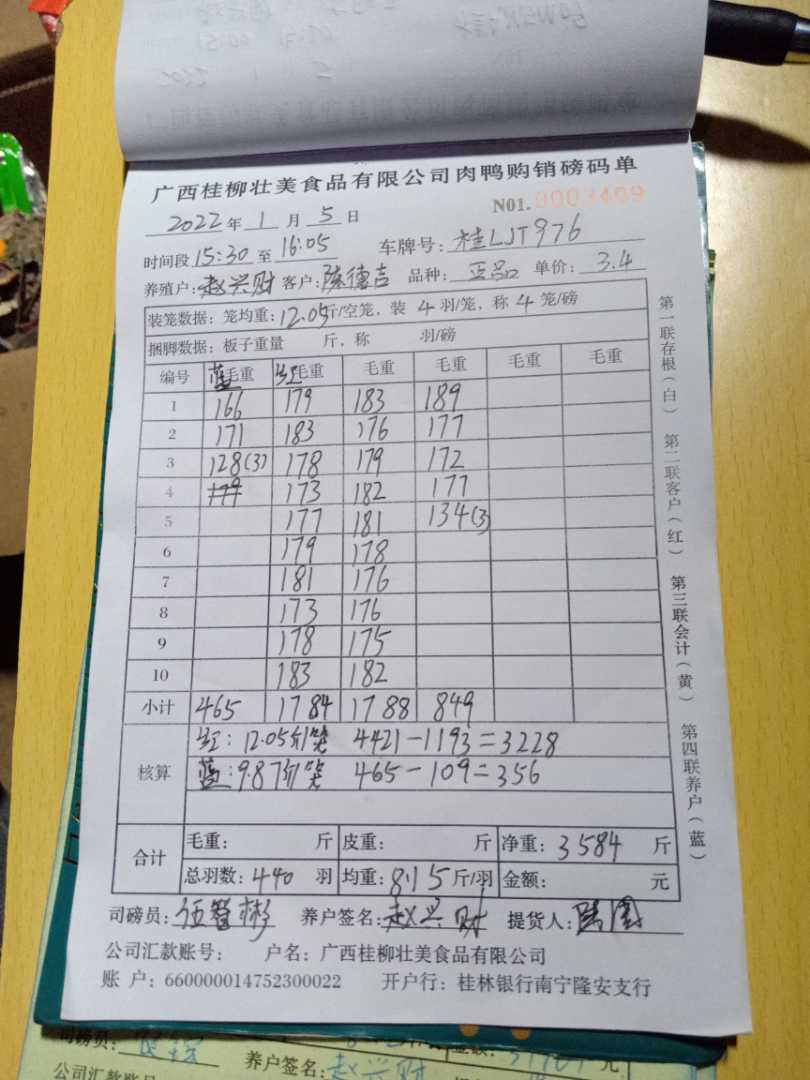 广西桂柳壮美食品有限公司肉鸭购销磅码单
2022年 1 月 5 日 N01. 0003409
时间段 15:30 至 16:05 车牌号: 桂LJT976
养殖户: 赵兴财 客户: 陆德吉 品种: 正品 单价: 3.4
装笼数据: 笼均重: 12.05斤/空笼, 装 4 羽/笼, 称 4 笼/磅
捆脚数据: 板子重量 斤, 称 羽/磅
编号 蓝毛重 红毛重 毛重 毛重 毛重 毛重
1 166 179 183 189
2 171 183 176 177
3 128(3) 178 179 172
4 173 182 177
5 177 181 134(3)
6 179 178
7 181 176
8 173 176
9 178 175
10 183 182
小计 465 1784 1788 849
核算
红: 12.05斤/笼 4421-1193=3228
蓝: 9.87斤/笼 465-109=356
合计
毛重: 斤 皮重: 斤 净重: 3584 斤
总羽数: 440 羽 均重: 8.15 斤/羽 金额: 元
司磅员: 伍智彬 养户签名: 赵兴财 提货人:
公司汇款账号: 户名: 广西桂柳壮美食品有限公司
账 户: 660000014752300022 开户行: 桂林银行南宁隆安支行
第一联存根(白) 第二联客户(红) 第三联会计(黄) 第四联养户(蓝)
司磅员:
养户签名: 赵兴财
公司汇款账号